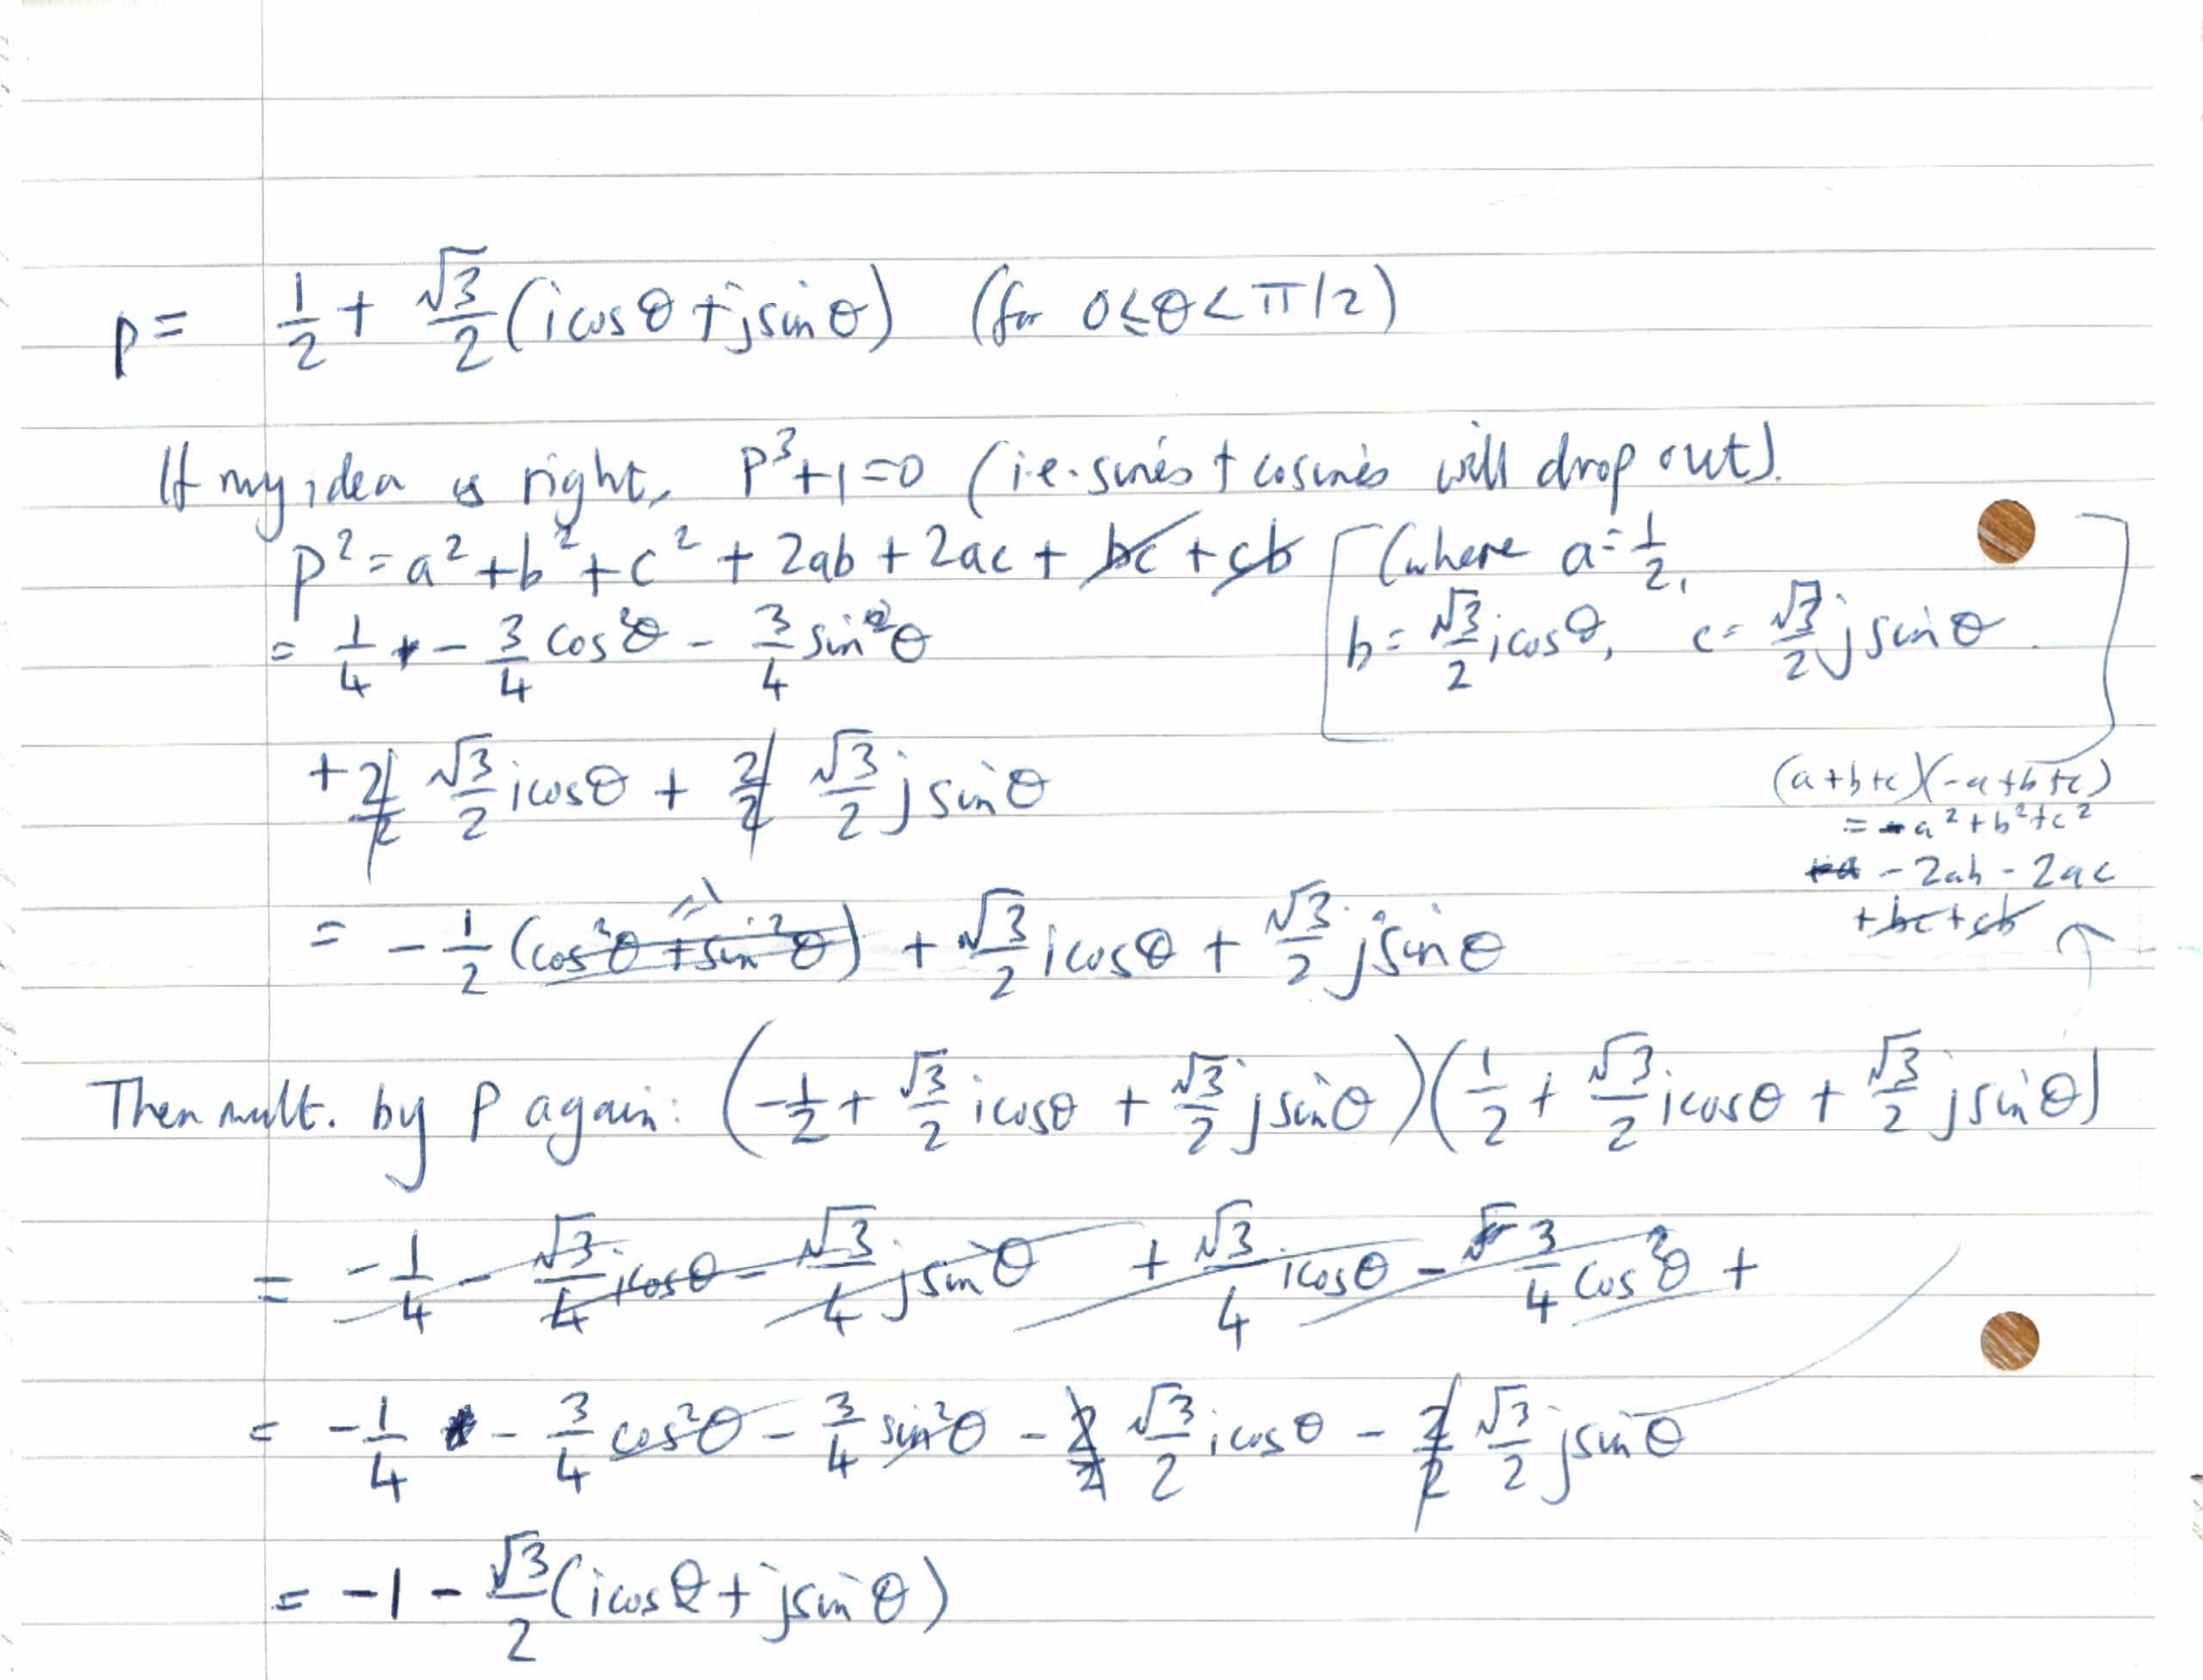 p = 1/2 + √3/2 (i cos θ + j sin θ) (for 0 ≤ θ < π/2)
If my idea is right, p³+1=0 (i.e. sines + cosines will drop out).
p² = a² + b² + c² + 2ab + 2ac + bc + cb [(where a = 1/2,
b = √3/2 i cos θ, c = √3/2 j sin θ. ]
= 1/4 - 3/4 cos²θ - 3/4 sin²θ
+ 2/2 √3/2 i cos θ + 2/2 √3/2 j sin θ
(a+b+c)(-a+b+c)
= -a²+b²+c²
- 2ab - 2ac
+ bc + cb
= -1/2 (cos²θ + sin²θ) + √3/2 i cos θ + √3/2 j sin θ
Then mult. by p again: (-1/2 + √3/2 i cos θ + √3/2 j sin θ)(1/2 + √3/2 i cos θ + √3/2 j sin θ)
= -1/4 - √3/4 i cos θ - √3/4 j sin θ + √3/4 i cos θ - 3/4 cos²θ +
= -1/4 - 3/4 cos²θ - 3/4 sin²θ - 2/2 √3/2 i cos θ - 2/2 √3/2 j sin θ
= -1 - √3/2 (i cos θ + j sin θ)